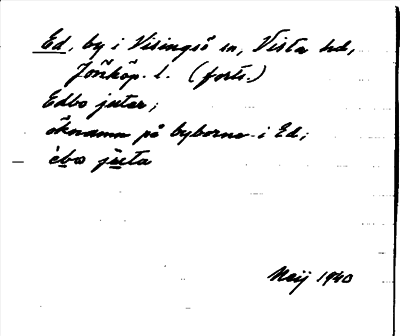 Ed, by i Visingsö sn, Vista hd,
Jönköp. l. (forts.)
Edbo jutar;
öknamn på byborna i Ed;
èbo jùta
Meij 1940